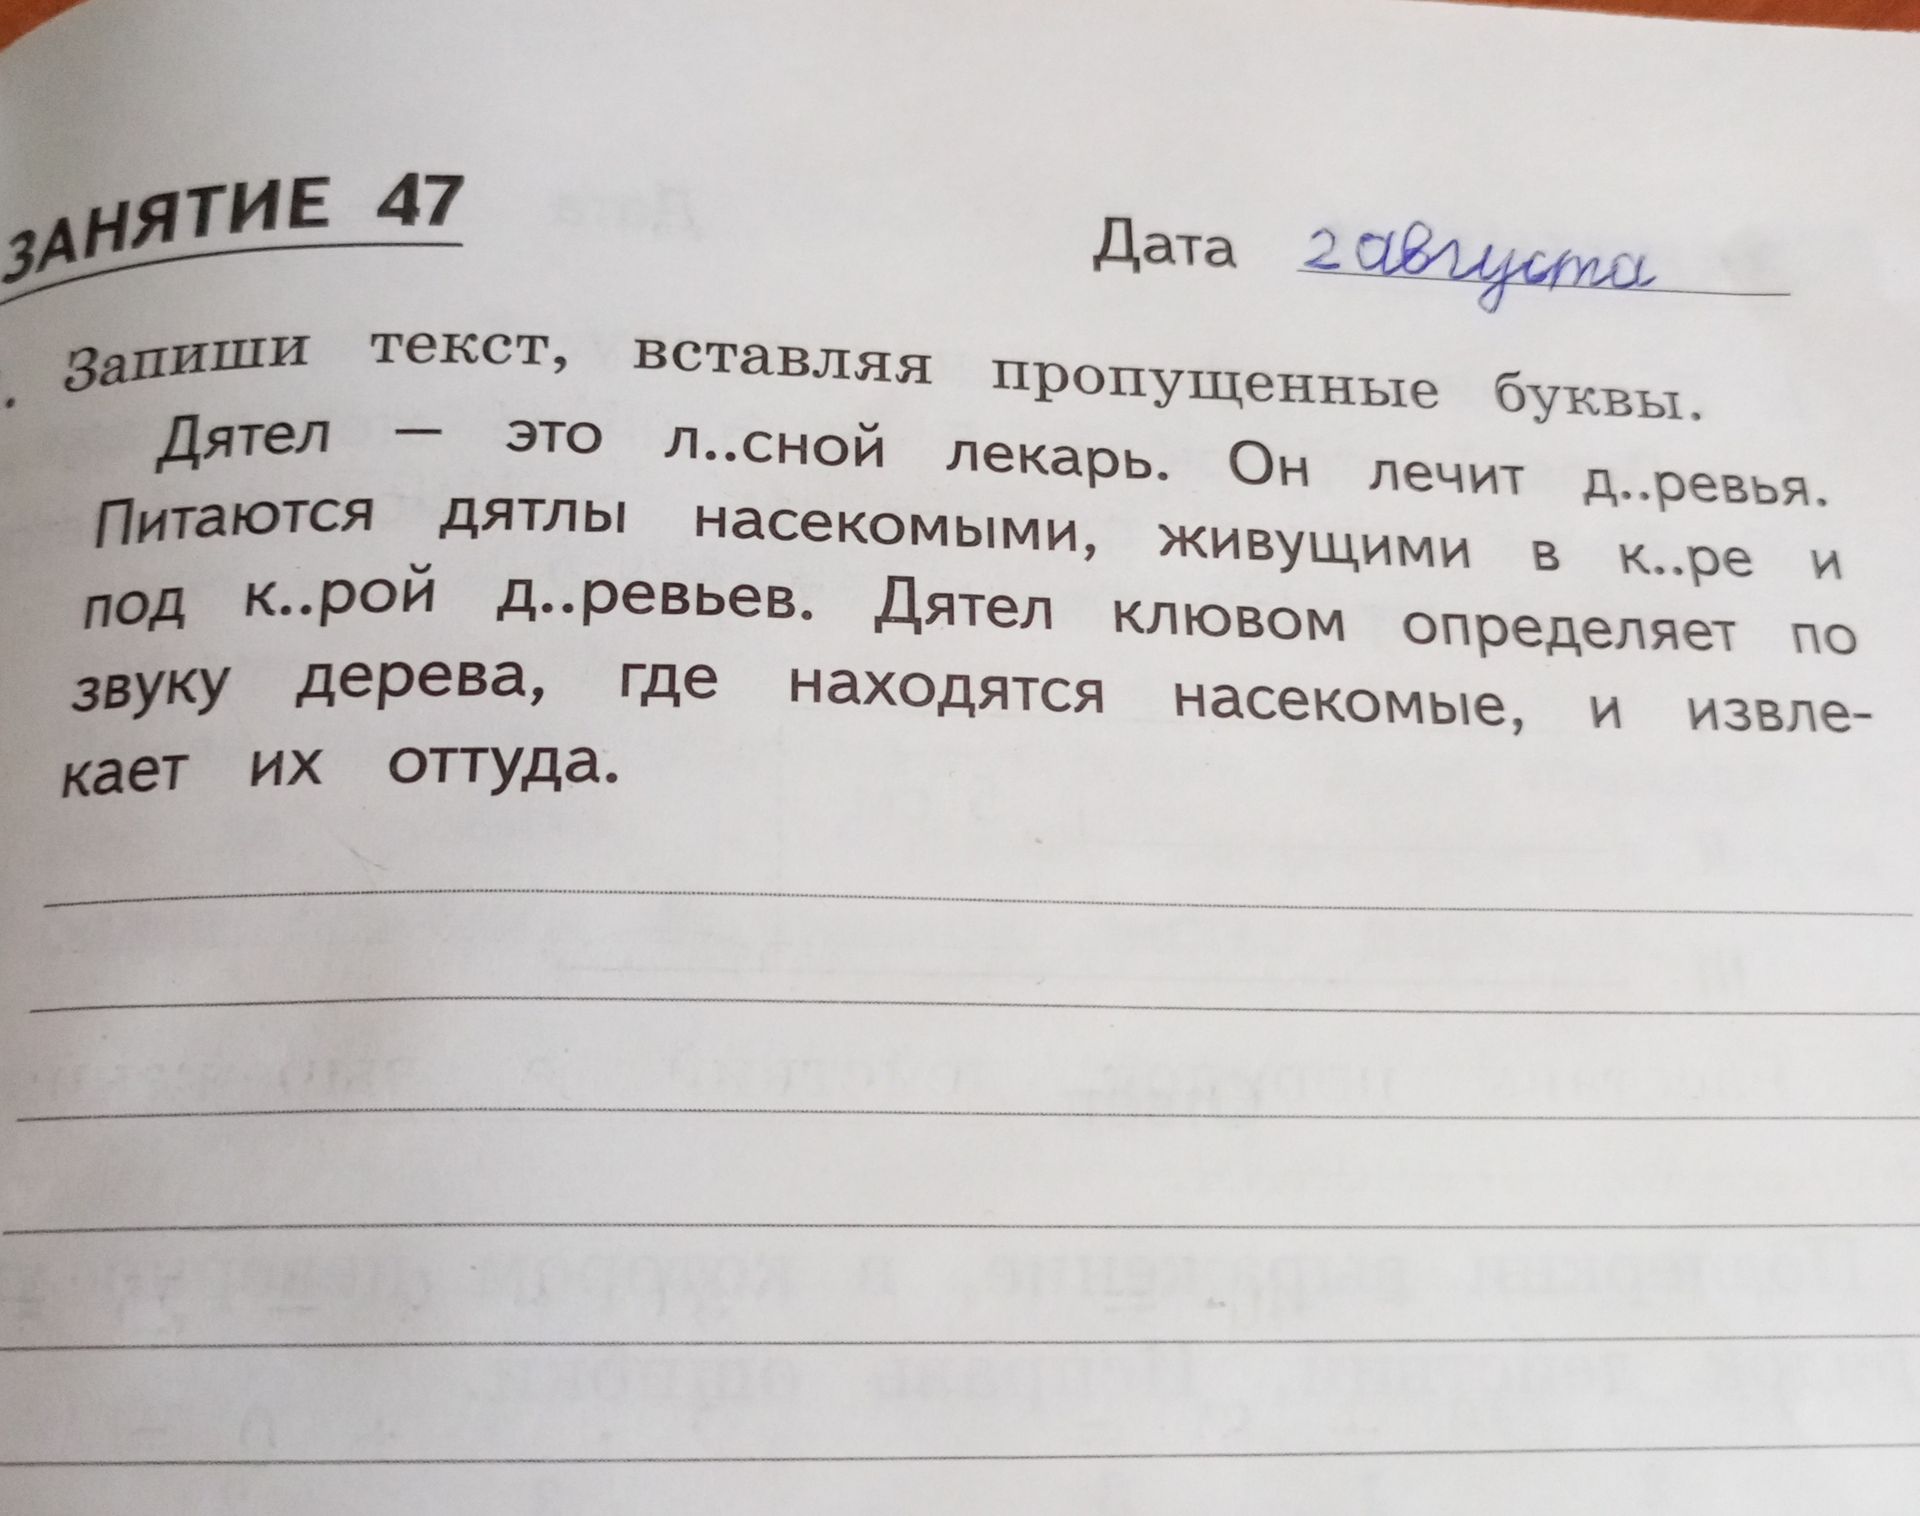 ЗАНЯТИЕ 47
Дата 2 августа
. Запиши текст, вставляя пропущенные буквы.
Дятел — это л..сной лекарь. Он лечит д..ревья.
Питаются дятлы насекомыми, живущими в к..ре и
под к..рой д..ревьев. Дятел клювом определяет по
звуку дерева, где находятся насекомые, и извле-
кает их оттуда.